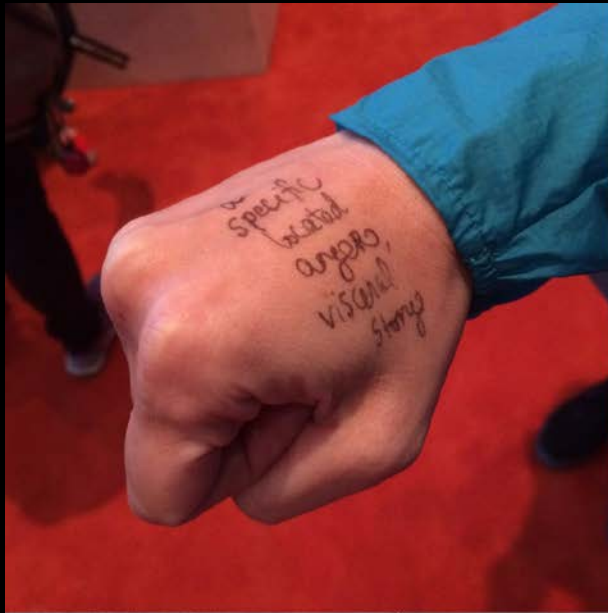 a
specific
located
anger,
visceral
story